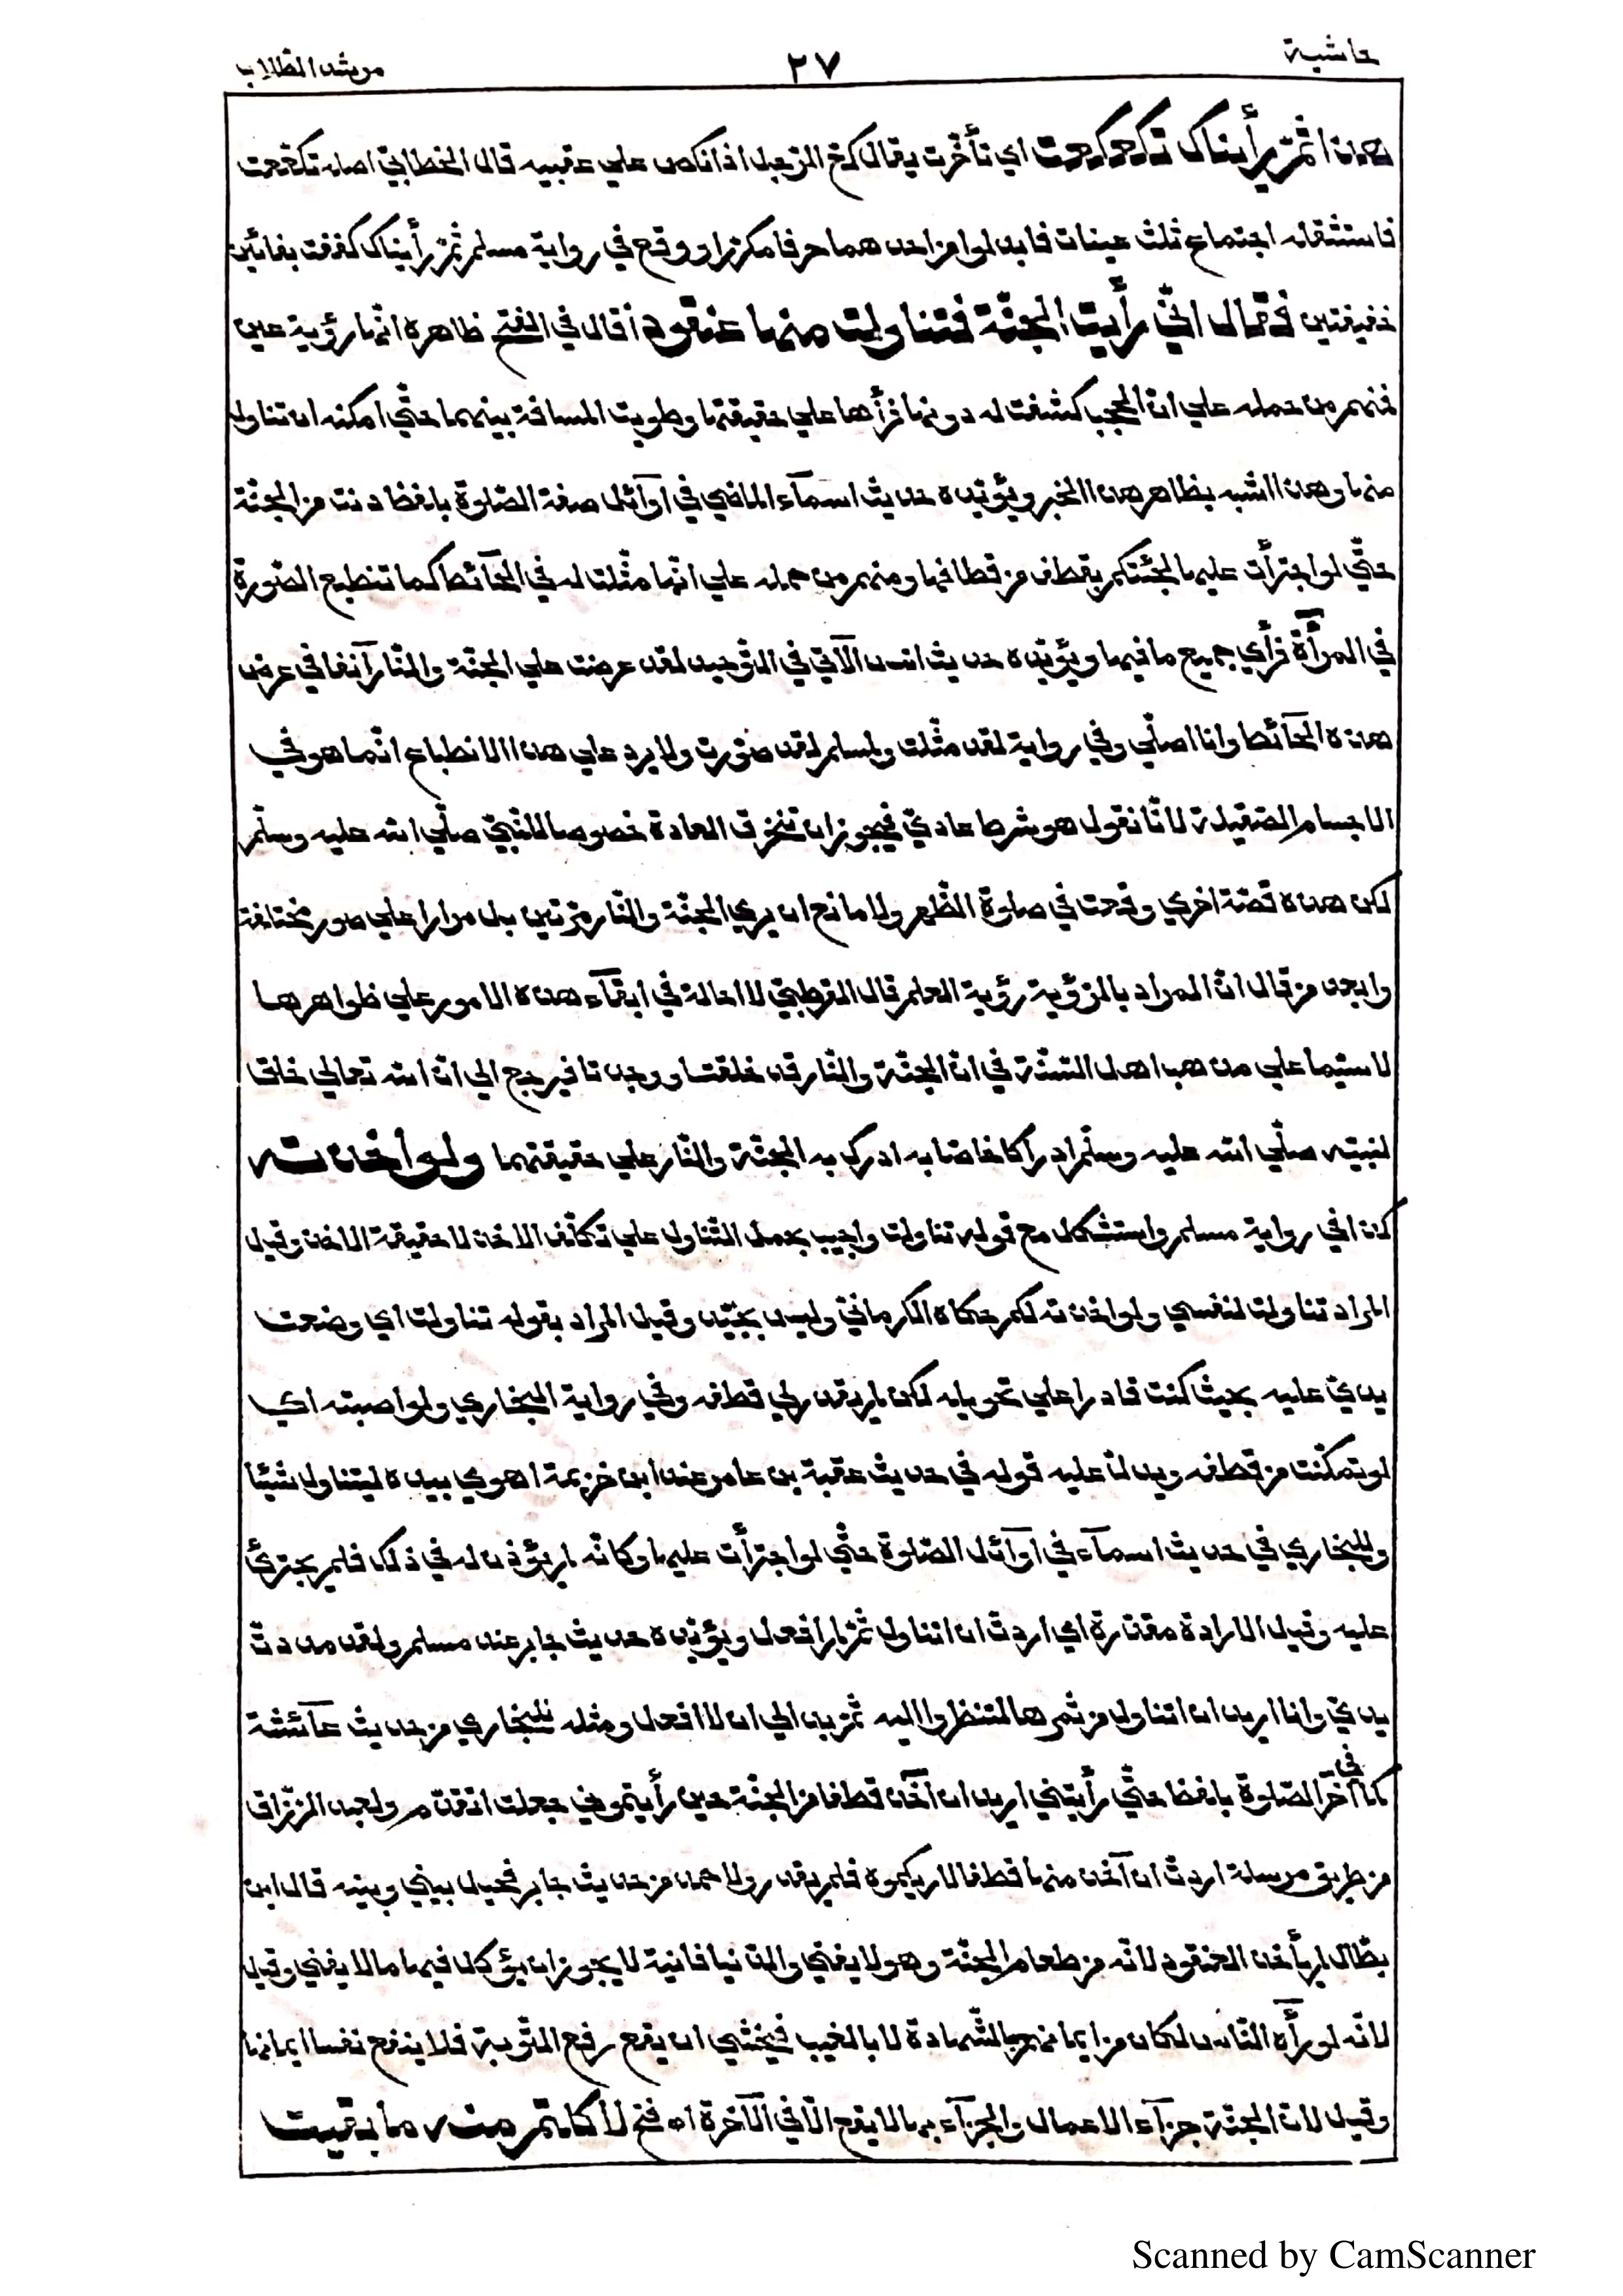 حاشية ٢٧ مرشد الطلاب
هذا ثمّ رأيناك تكعكعت اي تأخّرت يقال كعّ الرّجل اذا نكص علي عقبيه قال الخطابيّ اصله تكعّعت
فاستثقلوا اجتماع ثلث عينات فابدلوا من احدهما حرفا مكرّرا ووقع في رواية مسلم ثمّ رأيناك كففت بفائين
خفيفتين فقال انّي رأيت الجنّة فتناولت منها عنقودا قال في الفتح ظاهره انّها رؤية عين
فمنهم من حمله علي انّ الحجب كشفت له دونها فرأها علي حقيقتها وطويت المسافة بينهما حتّي امكنه ان تناول
منها وهذا اشبه بظاهر هذا الخبر ويؤيّده حديث اسمآء الماضي في اوآئل صفة الصّلوة بلفظ دنت من الجنّة
حتّي لو اجترأت عليها لجئتكم بقطف من قطافها ومنهم من حمله علي انّها مثّلت له في الحآئط كما تنطبع الصّورة
في المرآة فرأي جميع ما فيها ويؤيّده حديث انس الآتي في التّوحيد لقد عرضت علي الجنّة والنّار آنفا في عرض
هذه الحآئط وانا اصلّي وفي رواية لقد مثّلت ولمسلم لقد صوّرت ولا يرد علي هذا الانطباع انّما هو في
الاجسام الصّقيلة لانّا نقول هو شرط عاديّ فيجوز ان تنخرق العادة خصوصا للنّبيّ صلّي الله عليه وسلّم
لكن هذه قصّة اخري وقعت في صلوة الظّهر ولا مانع ان يري الجنّة والنّار مرّتين بل مرارا علي صور مختلفة
وابعد من قال انّ المراد بالرّؤية رؤية العلم قال القرطبيّ لا احالة في ابقآء هذه الامور علي ظواهرها
لا سيّما علي مذهب اهل السّنّة في انّ الجنّة والنّار قد خلقتا ووجدتا فيرجع الي انّ الله تعالي خلق
لنبيّه صلّي الله عليه وسلّم ادراكا خاصّا به ادرك به الجنّة والنّار علي حقيقتهما ولو اخذته
كذا في رواية مسلم واستشكل مع قوله تناولت واجيب بحمل التّناول علي تكلّف الاخذ لا حقيقة الاخذ وقيل
المراد تناولت لنفسي ولو اخذته لكم حكاه الكرمانيّ وليس بجيّد وقيل المراد بقوله تناولت اي وضعت
يديّ عليه بحيث كنت قادرا علي تحويله لكن لم يقدر لي قطفه وفي رواية البخاري ولو اصبته اي
لو تمكّنت من قطفه ويدلّ عليه قوله في حديث عقبة بن عامر عند ابن خزيمة اهوي بيده ليتناول شيئا
وللبخاري في حديث اسمآء في اوآئل الصّلوة حتّي لو اجترأت عليها وكانّه لم يؤذن له في ذلك فلم يجترئ
عليه وقيل الارادة مقدّرة اي اردت ان اتناول ثمّ لم افعل ويؤيّده حديث جابر عند مسلم ولقد مددت
يديّ وانا اريد ان اتناول من ثمرها لتنظروا اليه ثمّ بدا لي ان لا افعل ومثله للبخاري من حديث عآئشة
كما في آخر الصّلوة بلفظ حتّي رأيتني اريد ان آخذ قطفا من الجنّة حين رأيتموني جعلت اتقدّم ولعبد الرّزّاق
من طريق مرسلة اردت ان آخذ منها قطفا لاريكموه فلم يقدر ولاحمد من حديث جابر فحيل بيني وبينه قال ابن
بطّال لم يأخذ العنقود لانّه من طعام الجنّة وهو لا يفني والدّنيا فانية لا يجوز ان يؤكل فيها ما لا يفني وقيل
لانّه لو رأه النّاس لكان من ايمانهم بالشّهادة لا بالغيب فيخشي ان يقع رفع التّوبة فلا ينفع نفسا ايمانها
وقيل لانّ الجنّة جزآء الاعمال والجزآء بها لا يقع الّا في الآخرة اه فتح لأكلتم منه ما بقيت
Scanned by CamScanner